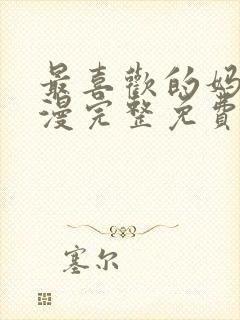 最喜歡的妈
漫完整免費
塞尔